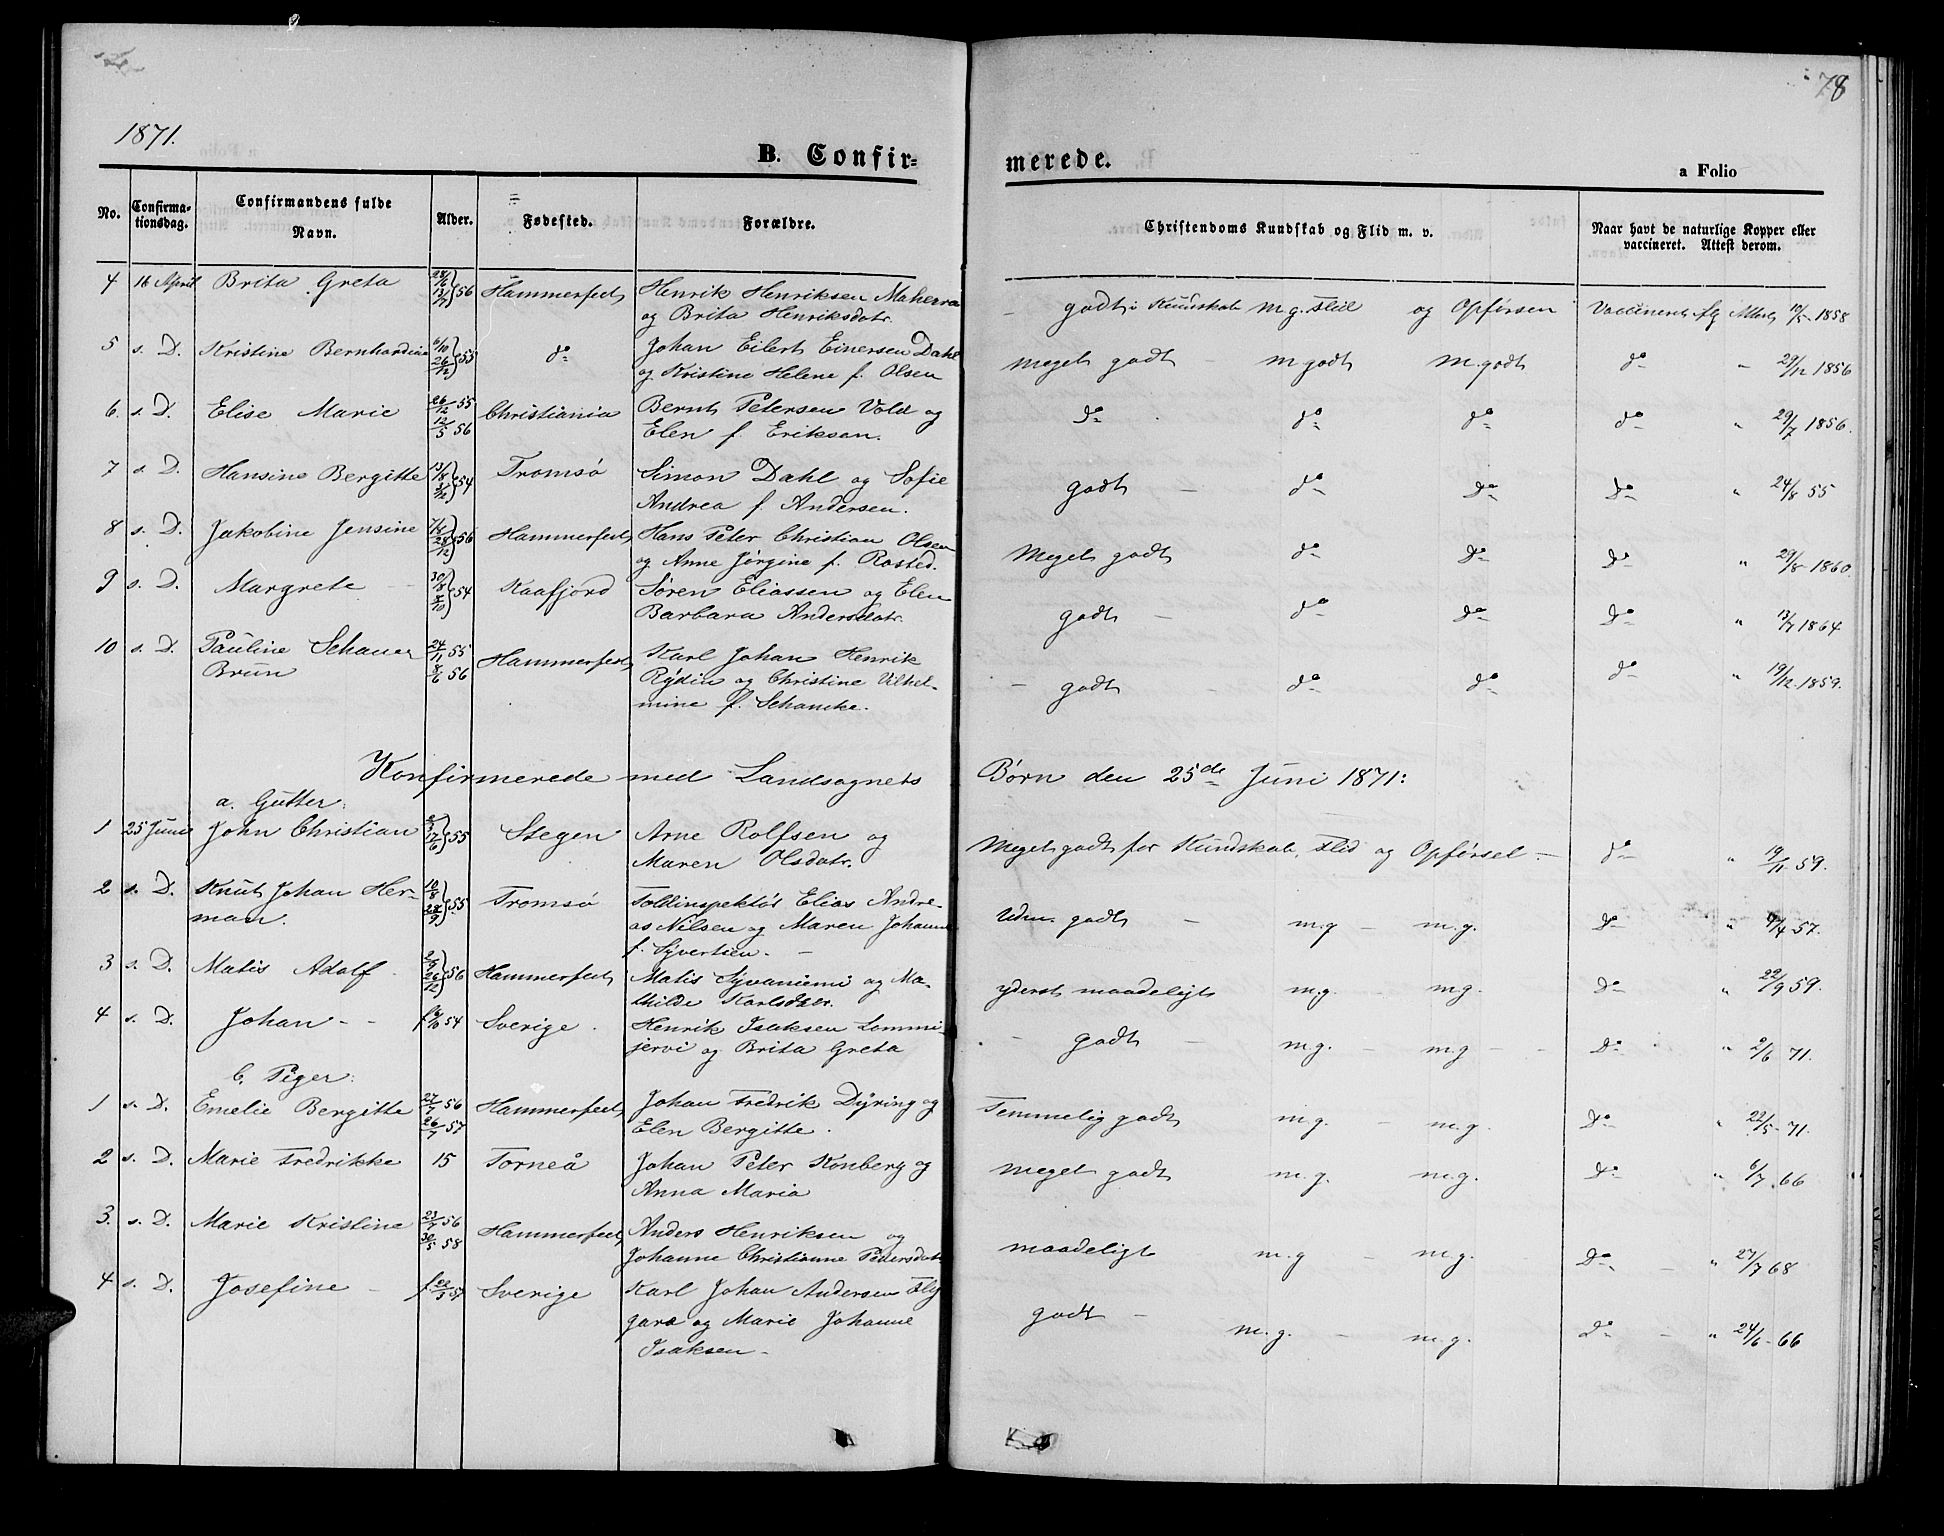 78
1871.
B. Confirmerede.
a Folio
No. Confirmationsdag. Confirmandens fulde Navn. Alder. Fødested. Forældre. Christendoms Kundskab og Flid m. v. Naar havt de naturlige Kopper eller vaccineret. Attest derom.
4 16 April Brita Greta 13/7 56 Hammerfest Henrik Henriksen
og Brita Henriksdatr. godt i Kundskab m.g. Flid og Opførsen Vaccineret flg Attest 1858
5 s. D. Kristine Bernhardine 26/12 55 do Johan Eilert Einersen Dahl
og Kristine Helene f. Olsen meget godt - m godt m. godt do " 29/12 1856
6. s. D. Elise Marie 26/12 55 12/5 56 Christiania Bernt Petersen Vold og
Elen f. Eriksen. do do do do " 29/7 1856.
7 s. D. Hansine Bergitte 13/8 54 Tromsø Simon Dahl og Sofie
Andrea f. Andersen. godt - do do do " 24/8 55
8 s. D. Jakobine Jensine 28/12 56 Hammerfest Hans Peter Christian Olsen
og Anne Jørgine f. Rosted. Meget godt do do do " 29/8 1860.
9 s. D. Margrete - 30/8 54 Kaafjord Søren Eliassen og Elen
Barbara Andersdatr. godt - do do do " 13/7 1864
10 s. D. Pauline Schauer
Brun 24/11 55 8/6 56 Hammerfest Karl Johan Henrik
Rydin og Christine Vilhel-
mine f. Schancke. - godt - do do do " 19/12 1859.
Konfirmerede med Landsognets Børn den 25de Juni 1871:
a. Gutter:
1 25 Juni John Christian 17/6 55 Stegen Arne Rolfsen og
Maren Olsdatr. Meget godt for Kundskab, Flid og Opførsel - do " 19/11 59.
2 s. D. Knut Johan Her-
man. 10/8 28/9 55 Tromsø Toldinspektør Elias Andre-
as Nilsen og Maren Johanne
f. Syvertsen. - Udm. godt - m.g - m.g. do " 57.
3 s. D. Matis Adolf 26/12 56 Hammerfest Matis Syvaniemi og Ma-
thilde Karlsdatr. yderst maadeligt m.g. m.g. do " 22/9 59.
4 s. D. Johan - - 54 Sverige. Henrik Isaksen Lommi-
jervi og Brita Greta - godt - m.g. - m.g - - do " 2/6 71.
b. Piger:
1 s. D. Emelie Bergitte 27/7 56 26/7 57 Hammerfest Johan Fredrik Dyring og
Elen Bergitte. Temmelig godt m.g. - m.g. do " 22/5 71.
2 s. D. Marie Fredrikke 15 Torneå Johan Peter Konberg og
Anna Maria meget godt m.g. m.g. do " 6/7 66
3. s. D. Marie Kristine 23/7 56 30/5 58 Hammerfest Anders Henriksen og
Johanne Christianne Pedersdatr. maadeligt m.g - m.g. do - " 27/7 68
4 s. D. Josefine - f 22/5 57 Sverige Karl Johan Andersen Fly
gare og Marie Johanne
Isaksen - godt - m.g. - m.g. do - " 24/6 - 66